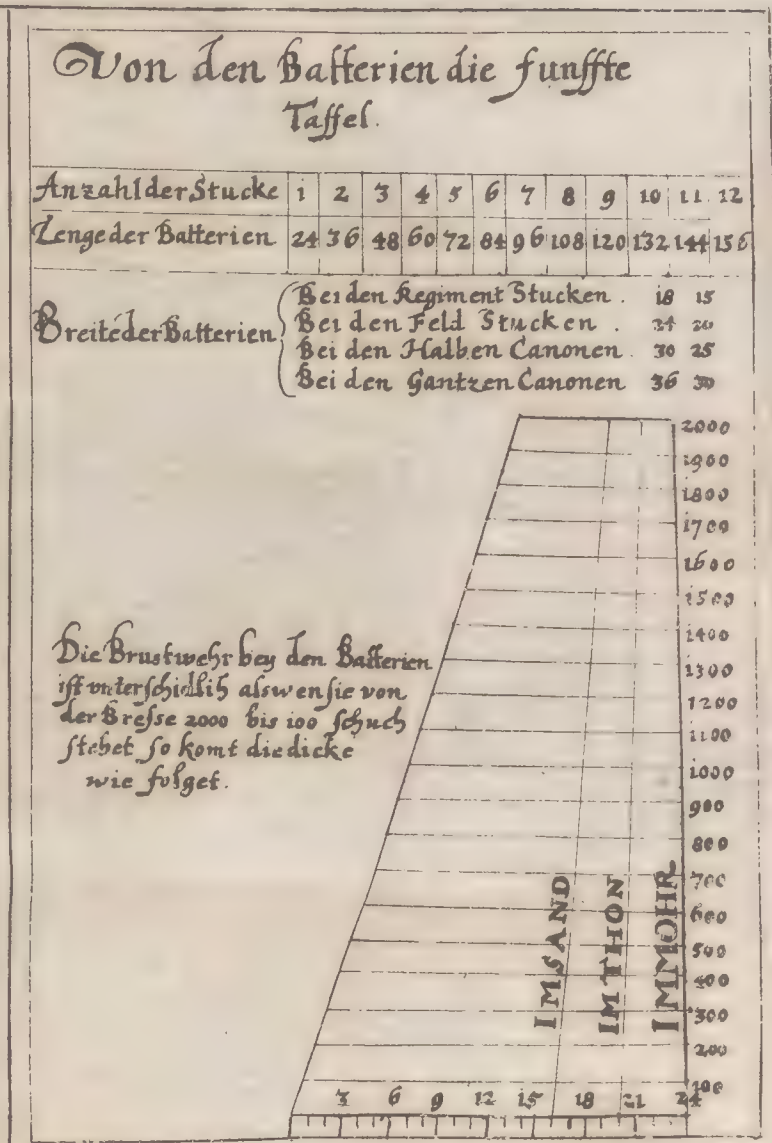 Von den Batterien die funffte
Taffel.
Anzahl der Stucke 1 2 3 4 5 6 7 8 9 10 11 12
Lenge der Batterien 24 36 48 60 72 84 96 108 120 132 144 156
Breite der Batterien
Bei den Regiment Stucken. 18 15
Bei den Feld Stucken. 24 20
Bei den Halben Canonen. 30 25
Bei den Gantzen Canonen 36 30
Die Brustwehr bey den Batterien
ist vnterschidlich als wen sie von
der Bresse 2000 bis 100 schuch
stehet so komt die dicke
wie folget.
2000
1900
1800
1700
1600
1500
1400
1300
1200
1100
1000
900
800
700
600
500
400
300
200
100
IM SAND
IM THON
IM MOHR
3 6 9 12 15 18 21 24